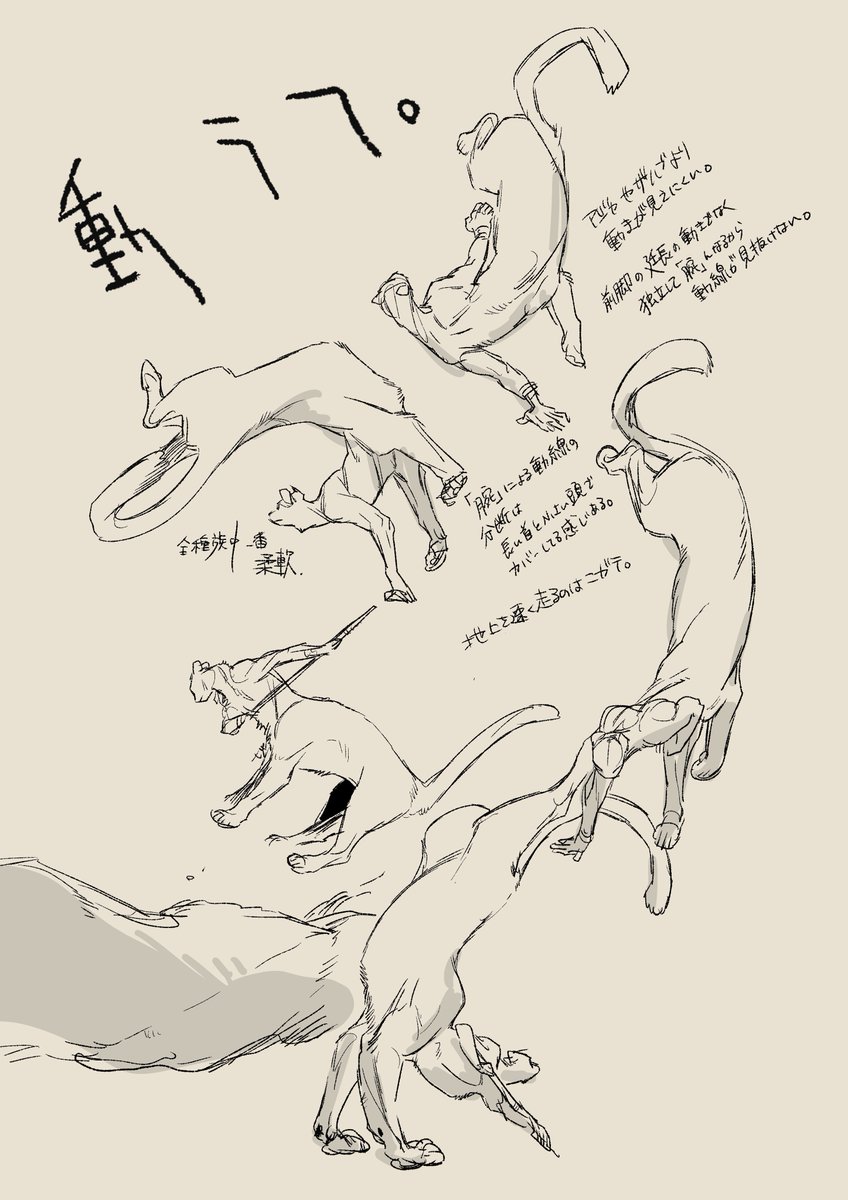 動ラフ。
動きが見えにくい。
前脚の延長の動きでなく
独立して「腕」んなるから
動線が見抜けない。
「腕」による動線の
分断は
長い首と小さい頭で
カバーしてる感じある。
全種族中一番
柔軟.
地上を速く走るのはニガテ。